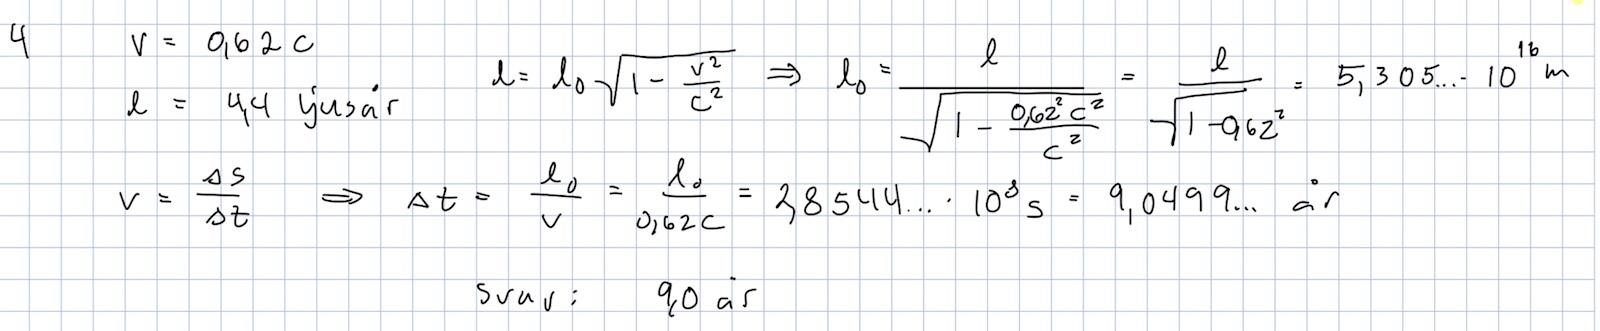 4 v = 0,62 c
l = 4,4 ljusår l = l₀ √(1 - v²/c²) ⇒ l₀ = l / √(1 - 0,62² c²/c²) = l / √(1 - 0,62²) = 5,305... · 10¹⁶ m
v = Δs/Δt ⇒ Δt = l₀/v = l₀/0,62c = 2,8544... · 10⁸ s = 9,0499... år
Svar: 9,0 år